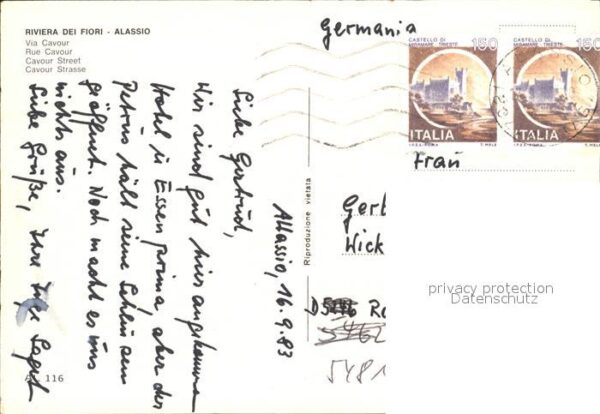 RIVIERA DEI FIORI - ALASSIO
Via Cavour
Rue Cavour
Cavour Street
Cavour Strasse
Alassio, 16.9.83
Liebe Gertrud,
Wir sind gut hier angekommen
Hotel u Essen prima, aber der
Petrus hält seine Schleusen
geöffnet. Noch macht es uns
nichts aus.
Liebe Grüße, Ihre Inge
A. 116
Riproduzione vietata
Germania
CASTELLO DI
MIRAMARE - TRIESTE
150
ITALIA
I.P.Z.S.-ROMA
CASTELLO DI
MIRAMARE - TRIESTE
150
ITALIA
I.P.Z.S.-ROMA
Frau
Gert
Wick
privacy protection
Datenschutz
5481